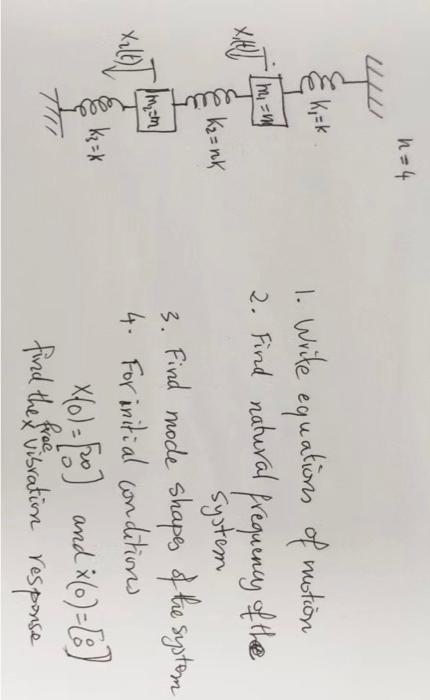 n=4
k₁=k
m₁=m
X₁(t)
k₂=nk
m₂=m
X₂(t)
k₃=k
1. Write equations of motion
2. Find natural frequency of the
system
3. Find mode shapes of the system
4. For initial conditions
X(0)=[20 0] and ẋ(0)=[0 0]
find the free vibration response